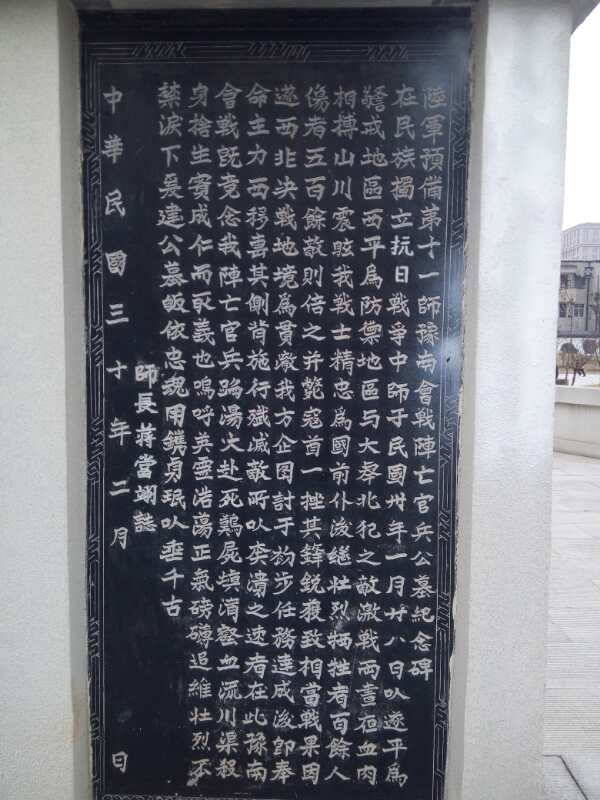 陸軍預備第十一師豫南會戰陣亡官兵公墓紀念碑
在民族獨立抗日戰爭中師于民國卅年一月廿八日以遂平爲
警戒地區西平爲防禦地區与大舉北犯之敵激戰兩晝夜血肉
相搏山川震眩我戰士精忠爲國前仆後繼壯烈犧牲者百餘人
傷者五百餘敵則倍之并斃寇首一挫其鋒銳獲致相當戰果因
遂西非决戰地境爲貫徹我方企圖討于初步任務達成後即奉
命主力西移聽其側背施行殲滅敵所以奔潰之速者在此豫南
會戰既竟念我陣亡官兵蹈湯火赴死難屍填溝壑血流川渠殺
身捨生實成仁而取義也嗚呼英靈浩蕩正氣磅礴追維壯烈不
禁淚下爰建公墓皈依忠魂用鐫貞珉以垂千古
師長蔣當翊誌
中華民國三十年二月 日